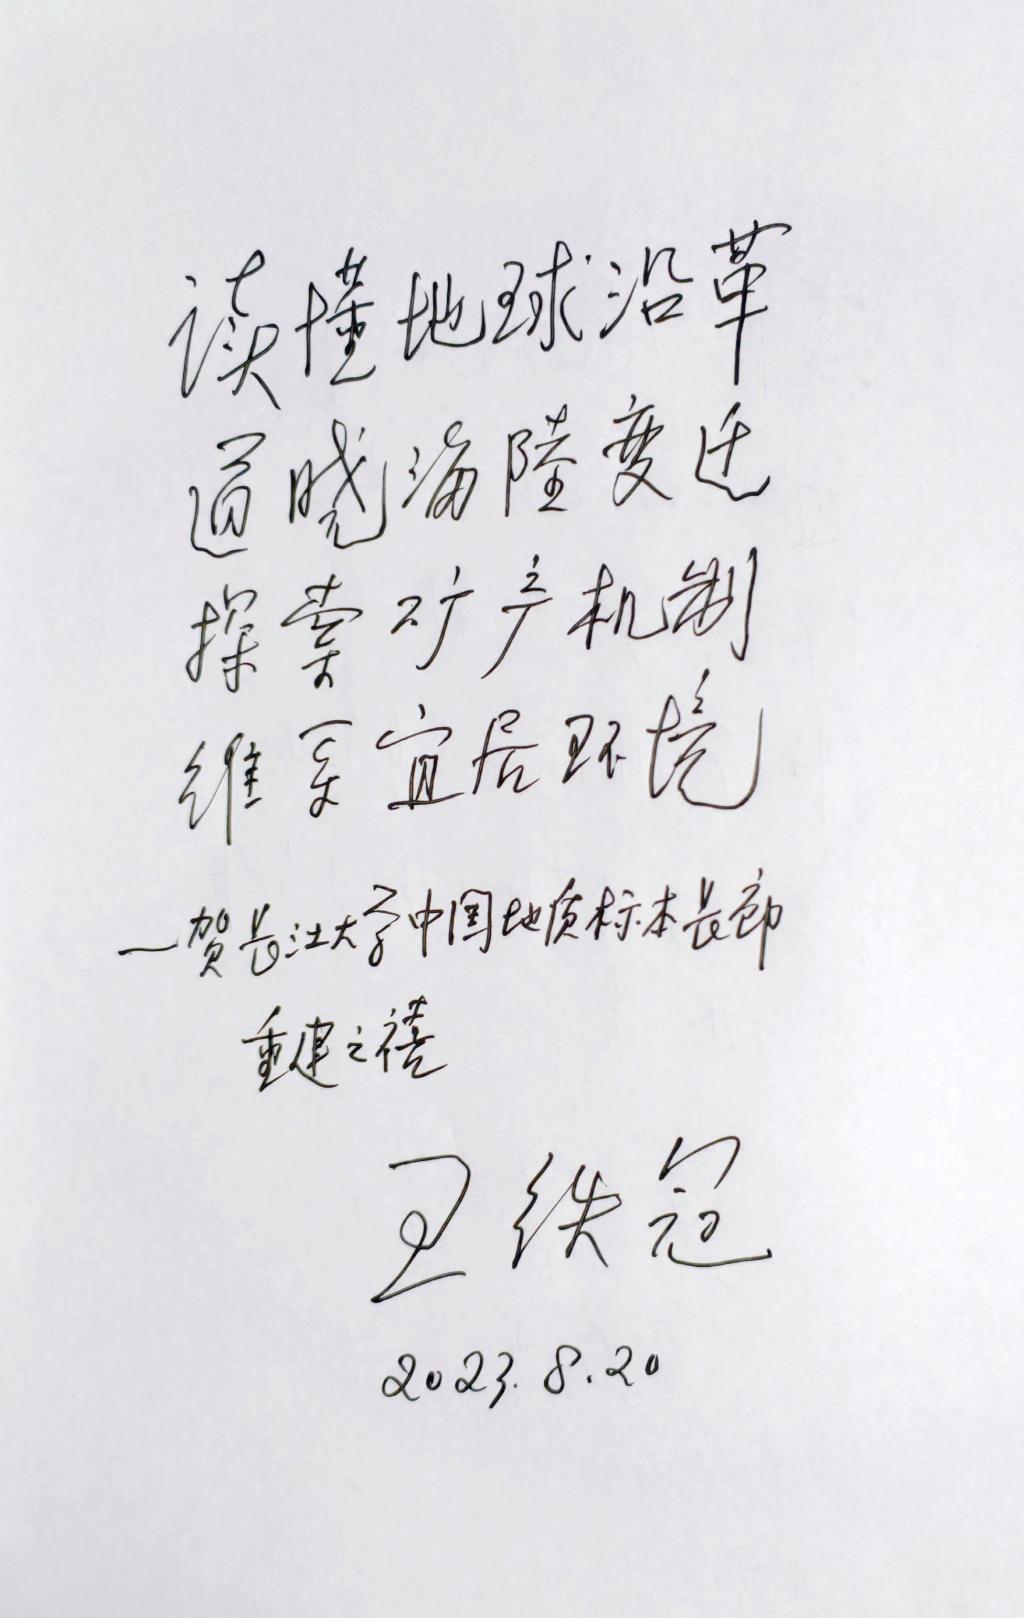 读懂地球沿革
道晓海陸变迁
探索矿产机制
维系宜居环境
—贺长江大学中国地质标本长廊
重建之禧
王铁冠
2023.8.20